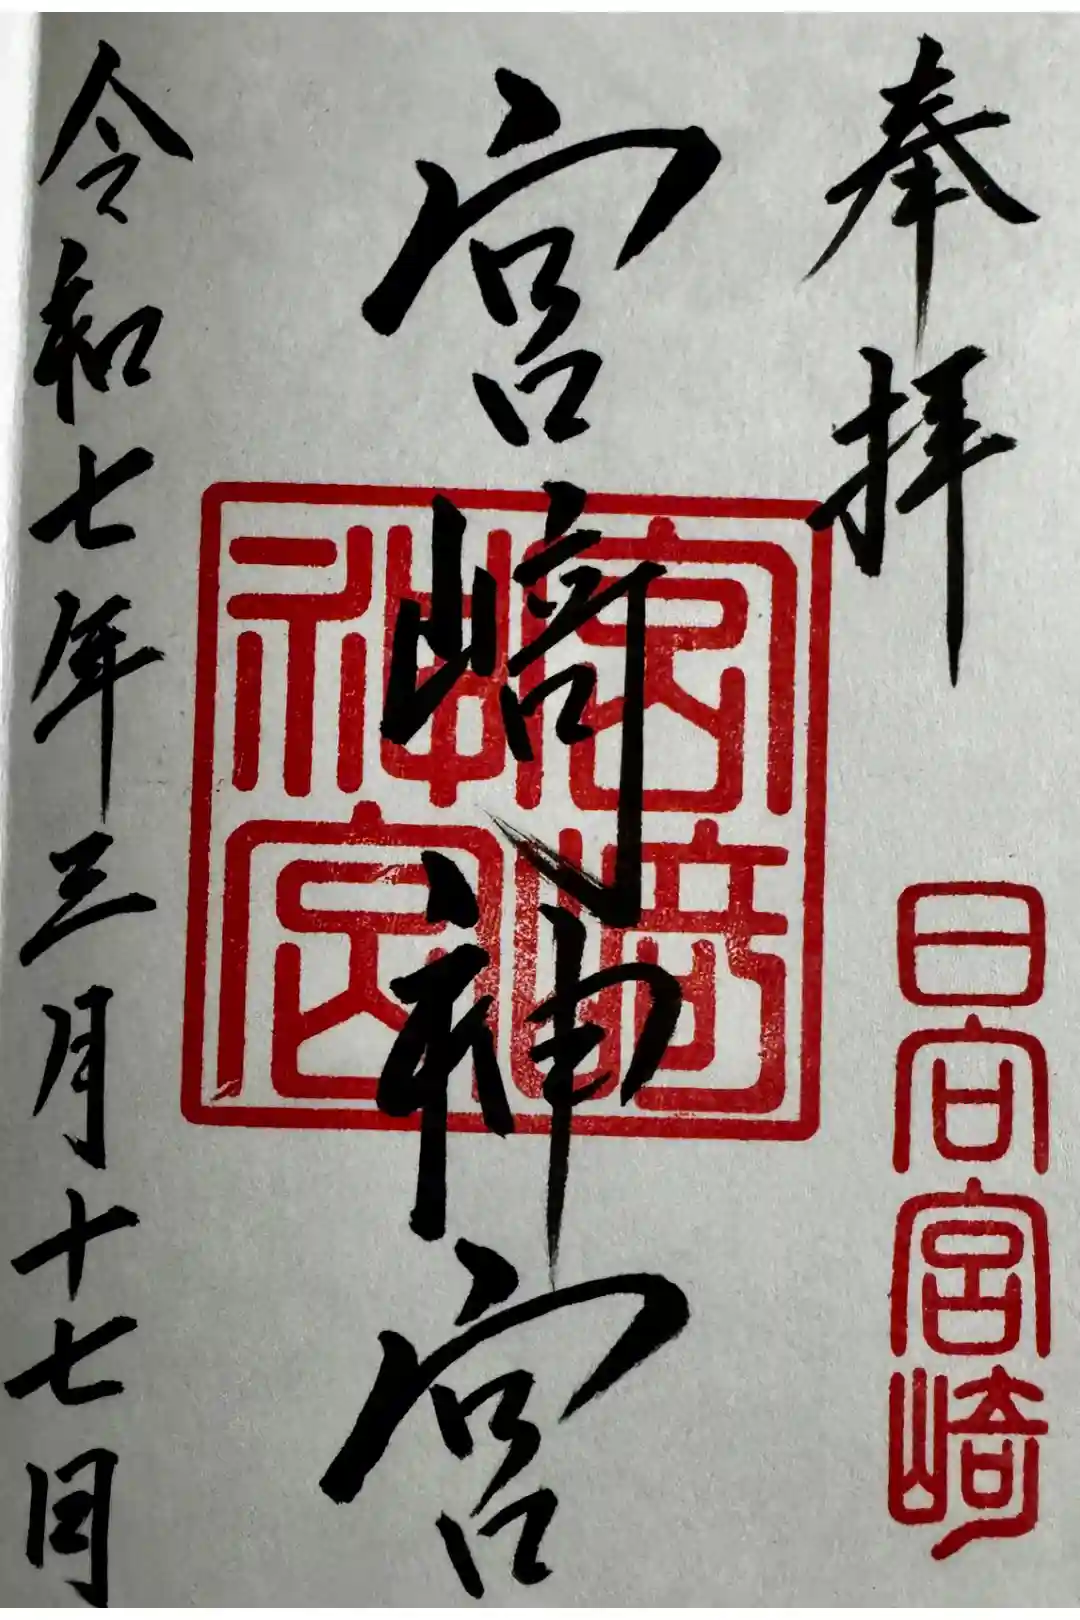 奉拝
日向宮崎
宮崎神宮
宮崎神宮
令和七年三月十七日